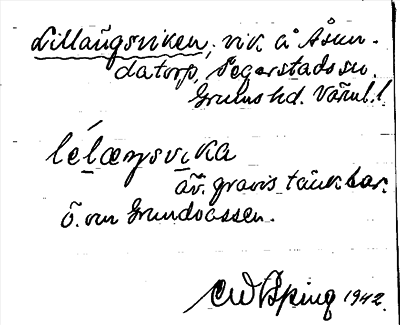 Lillängsviken, vik å Åsun-
datorp, Segerstads sn.
Grums hd. Värml. l.
lélæŋsvika
äv. gravis tänkbar.
ö. om Grundvassen.
1942.